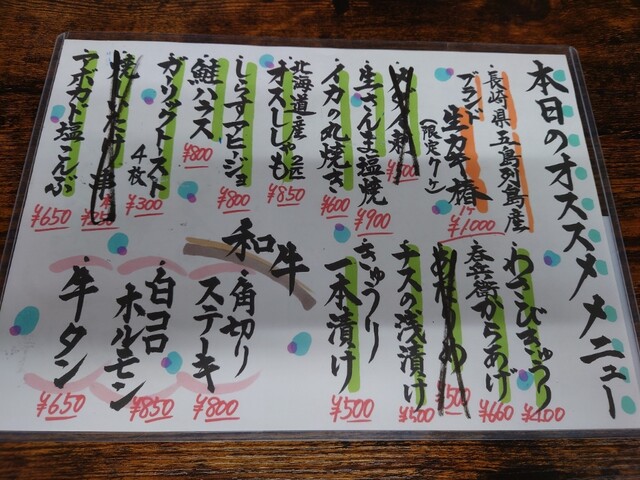 本日のオススメメニュー
長崎県五島列島産
ブランド生カキ椿
(限定6ケ)
1ケ
¥1000
¥700
・生さんま塩焼
¥900
・イカの丸焼き
¥600
北海道産
・オスししゃも2匹
¥850
・しらすアヒージョ
¥800
・鮭ハラス
¥800
・ガーリックトースト
4枚
¥300
・焼しいたけ1串
¥250
・アボカド塩こんぶ
¥650
・わさびきゅうり
¥400
・呑兵衛からあげ
¥660
・あたりめ
¥500
・ナスの浅漬け
¥500
・きゅうり
一本漬け
¥500
和牛
・角切り
ステーキ
¥800
・白コロ
ホルモン
¥850
・牛タン
¥650